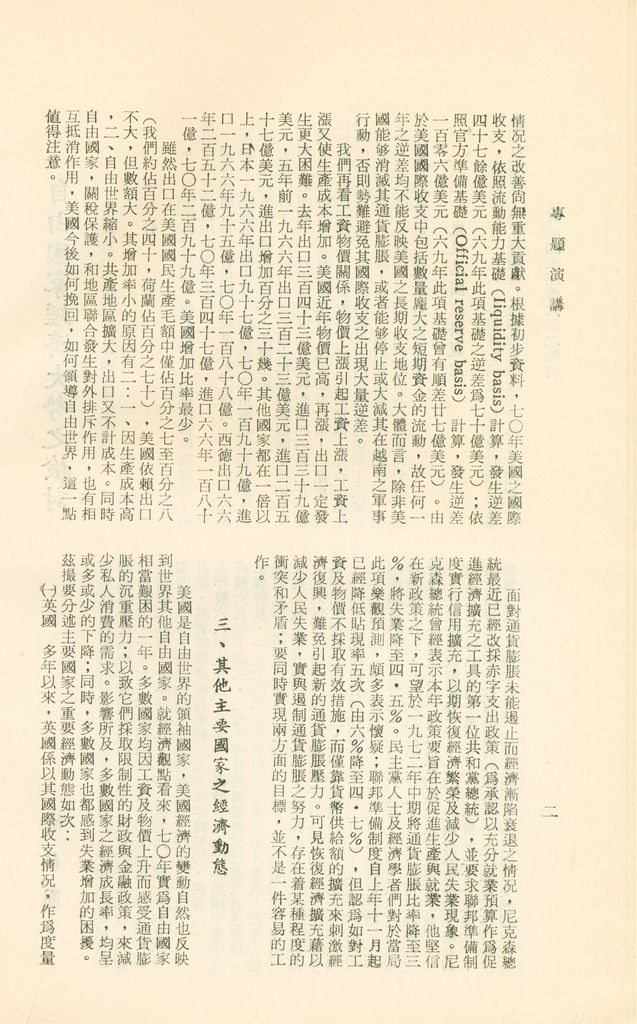 專題演講
二
情况之改善尙無重大貢獻。根據初步資料，七〇年美國之國際
收支，依照流動能力基礎（liquidity basis）計算，發生逆差
四十七餘億美元（六九年此項基礎之逆差爲七十億美元）；依
照官方準備基礎（Official reserve basis）計算，發生逆差
一百零六億美元（六九年此項基礎曾有順差廿七億美元）。由
於美國國際收支中包括數量龐大之短期資金的流動，故任何一
年之逆差均不能反映美國之長期收支地位。大體而言，除非美
國能够消滅其通貨膨脹，或者能够停止或大減其在越南之軍事
行動，否則勢難避免其國際收支之出現大量逆差。
我們再看工資物價關係，物價上漲引起工資上漲，工資上
漲又使生產成本增加。美國近年物價已高，再漲，出口一定發
生更大困難。去年出口三百四十三億美元，進口三百三十九億
美元，五年前一九六六年出口三百二十三億美元，進口二百五
十七億美元，進出口增加百分之三十幾。其他國家都在一倍以
上，日本一九六六年出口九十七億，七〇年一百九十九億，進
口一九六六年九十五億，七〇年一百八十八億。西德出口六六
年二百五十二億，七〇年三百四十七億，進口六六年一百八十
一億，七〇年二百九十九億。美國增加比率最少。
雖然出口在美國國民生產毛額中僅佔百分之七至百分之八
（我們約佔百分之四十，荷蘭佔百分之七十），美國依賴出口
不大，但數額大。其增加率小的原因有二：一、因生產成本高
，二、自由世界縮小。共產地區擴大，出口又不計成本。同時
自由國家，關稅保護，和地區聯合發生對外排斥作用，也有相
互抵消作用，美國今後如何挽回，如何領導自由世界，這一點
值得注意。
面對通貨膨脹未能遏止而經濟漸陷衰退之情況，尼克森總
統最近已經改採赤字支出政策（爲承認以充分就業預算作爲促
進經濟擴充之工具的第一位共和黨總統），並要求聯邦準備制
度實行信用擴充，以期恢復經濟繁榮及減少人民失業現象。尼
克森總統曾經表示本年政策要旨在於促進生產與就業，他堅信
在新政策之下，可望於一九七二年中期將通貨膨脹比率降至三
%，將失業降至四·五%。民主黨人士及經濟學者們對於當局
此項樂觀預測，頗多表示懷疑；聯邦準備制度自上年十一月起
已經降低貼現率五次（由六%降至四·七%），但認爲如對工
資及物價不採取有效措施，而僅靠貨幣供給額的擴充來刺激經
濟復興，難免引起新的通貨膨脹壓力。可見恢復經濟擴充藉以
減少人民失業，實與遏制通貨膨脹之努力，存在着某種程度的
衝突和矛盾；要同時實現兩方面的目標，並不是一件容易的工
作。
三、其他主要國家之經濟動態
美國是自由世界的領袖國家，美國經濟的變動自然也反映
到世界其他自由國家。就經濟觀點看來，七〇年實爲自由國家
相當艱困的一年。多數國家均因工資及物價上升而感受通貨膨
脹的沉重壓力；以致它們採取限制性的財政與金融政策，來減
少私人消費的需求。影響所及，多數國家之經濟成長率，均呈
或多或少的下降；同時，多數國家也都感到失業增加的困擾。
茲撮要分述主要國家之重要經濟動態如次：
㈠英國　多年以來，英國係以其國際收支情況，作爲度量